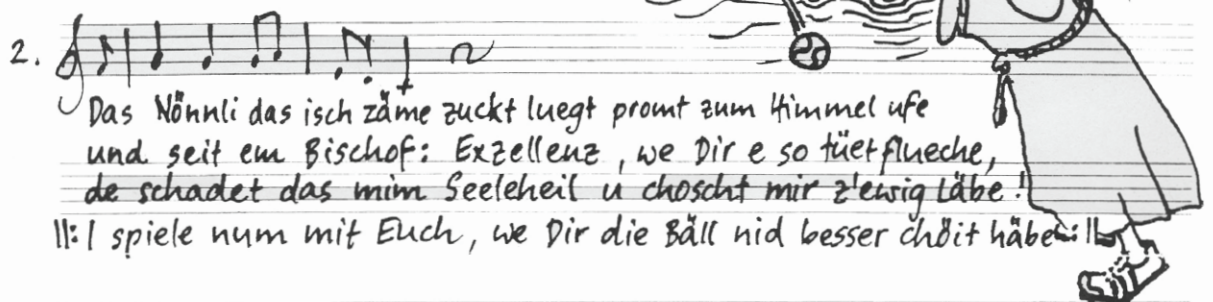 2.
Das Nönnli das isch zäme zuckt luegt promt zum Himmel ufe
und seit em Bischof: Exzellenz, we Dir e so tüet flueche,
de schadet das mim Seeleheil u choscht mir z'ewig Läbe!
||: I spiele num mit Euch, we Dir die Bäll nid besser chöit häbe :||